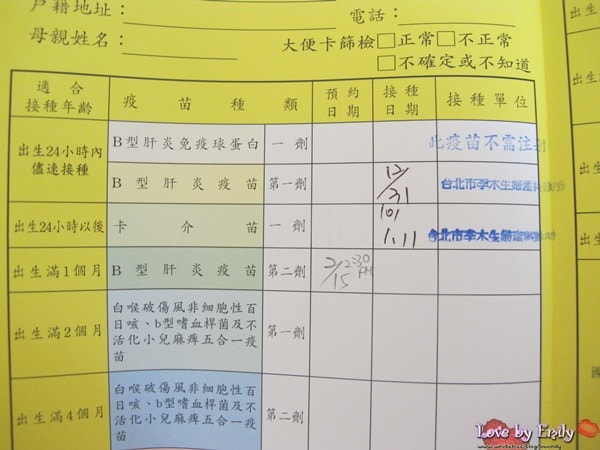 戶籍地址:
電話:
母親姓名:
大便卡篩檢□正常□不正常
□不確定或不知道
適合接種年齡 疫苗種類 預約日期 接種日期 接種單位
出生24小時內儘速接種 B型肝炎免疫球蛋白 一劑 此疫苗不需注射
B型肝炎疫苗 第一劑 12/31 台北市李木生婦產科
出生24小時以後 卡介苗 一劑 101 1.11 台北市李木生婦產科
出生滿1個月 B型肝炎疫苗 第二劑 2/15 2:30 PM
出生滿2個月 白喉破傷風非細胞性百日咳、b型嗜血桿菌及不活化小兒麻痺五合一疫苗 第一劑
出生滿4個月 白喉破傷風非細胞性百日咳、b型嗜血桿菌及不活化小兒麻痺五合一疫苗 第二劑
出生
出生
出生
國
Love by Emily